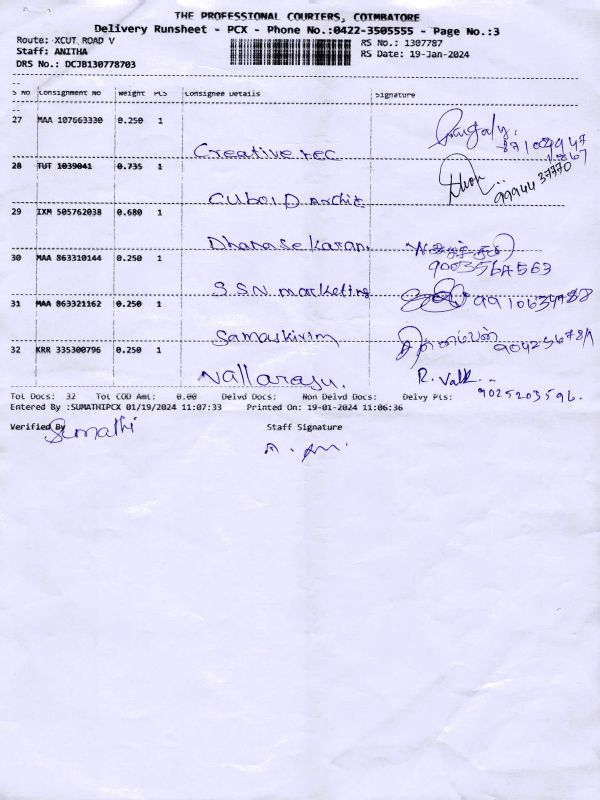 THE PROFESSIONAL COURIERS, COIMBATORE
Delivery Runsheet - PCX - Phone No.:0422-3505555 - Page No.:3
Route: XCUT ROAD V RS No.: 1307787
Staff: ANITHA RS Date: 19-Jan-2024
DRS No.: DCJB130778703
S No Consignment No Weight PCS Consignee Details Signature
27 MAA 107663330 0.250 1
Creative rec
28 TUT 1039841 0.735 1
CUBOID Archie 9994437770
29 IXM 505762038 0.680 1
Dhanasekaran. 9003564563
30 MAA 863310144 0.250 1
S.S.N marketing
31 MAA 863321162 0.250 1
32 KRR 335300796 0.250 1
Nallarasu. R. Valli 9025203596.
Tot Docs: 32 Tot COD Amt: 0.00 Delvd Docs: Non Delvd Docs: Delvy Pts:
Entered By :SUMATHIPCX 01/19/2024 11:07:33 Printed On: 19-01-2024 11:06:36
Verified By Staff Signature
Sumathi